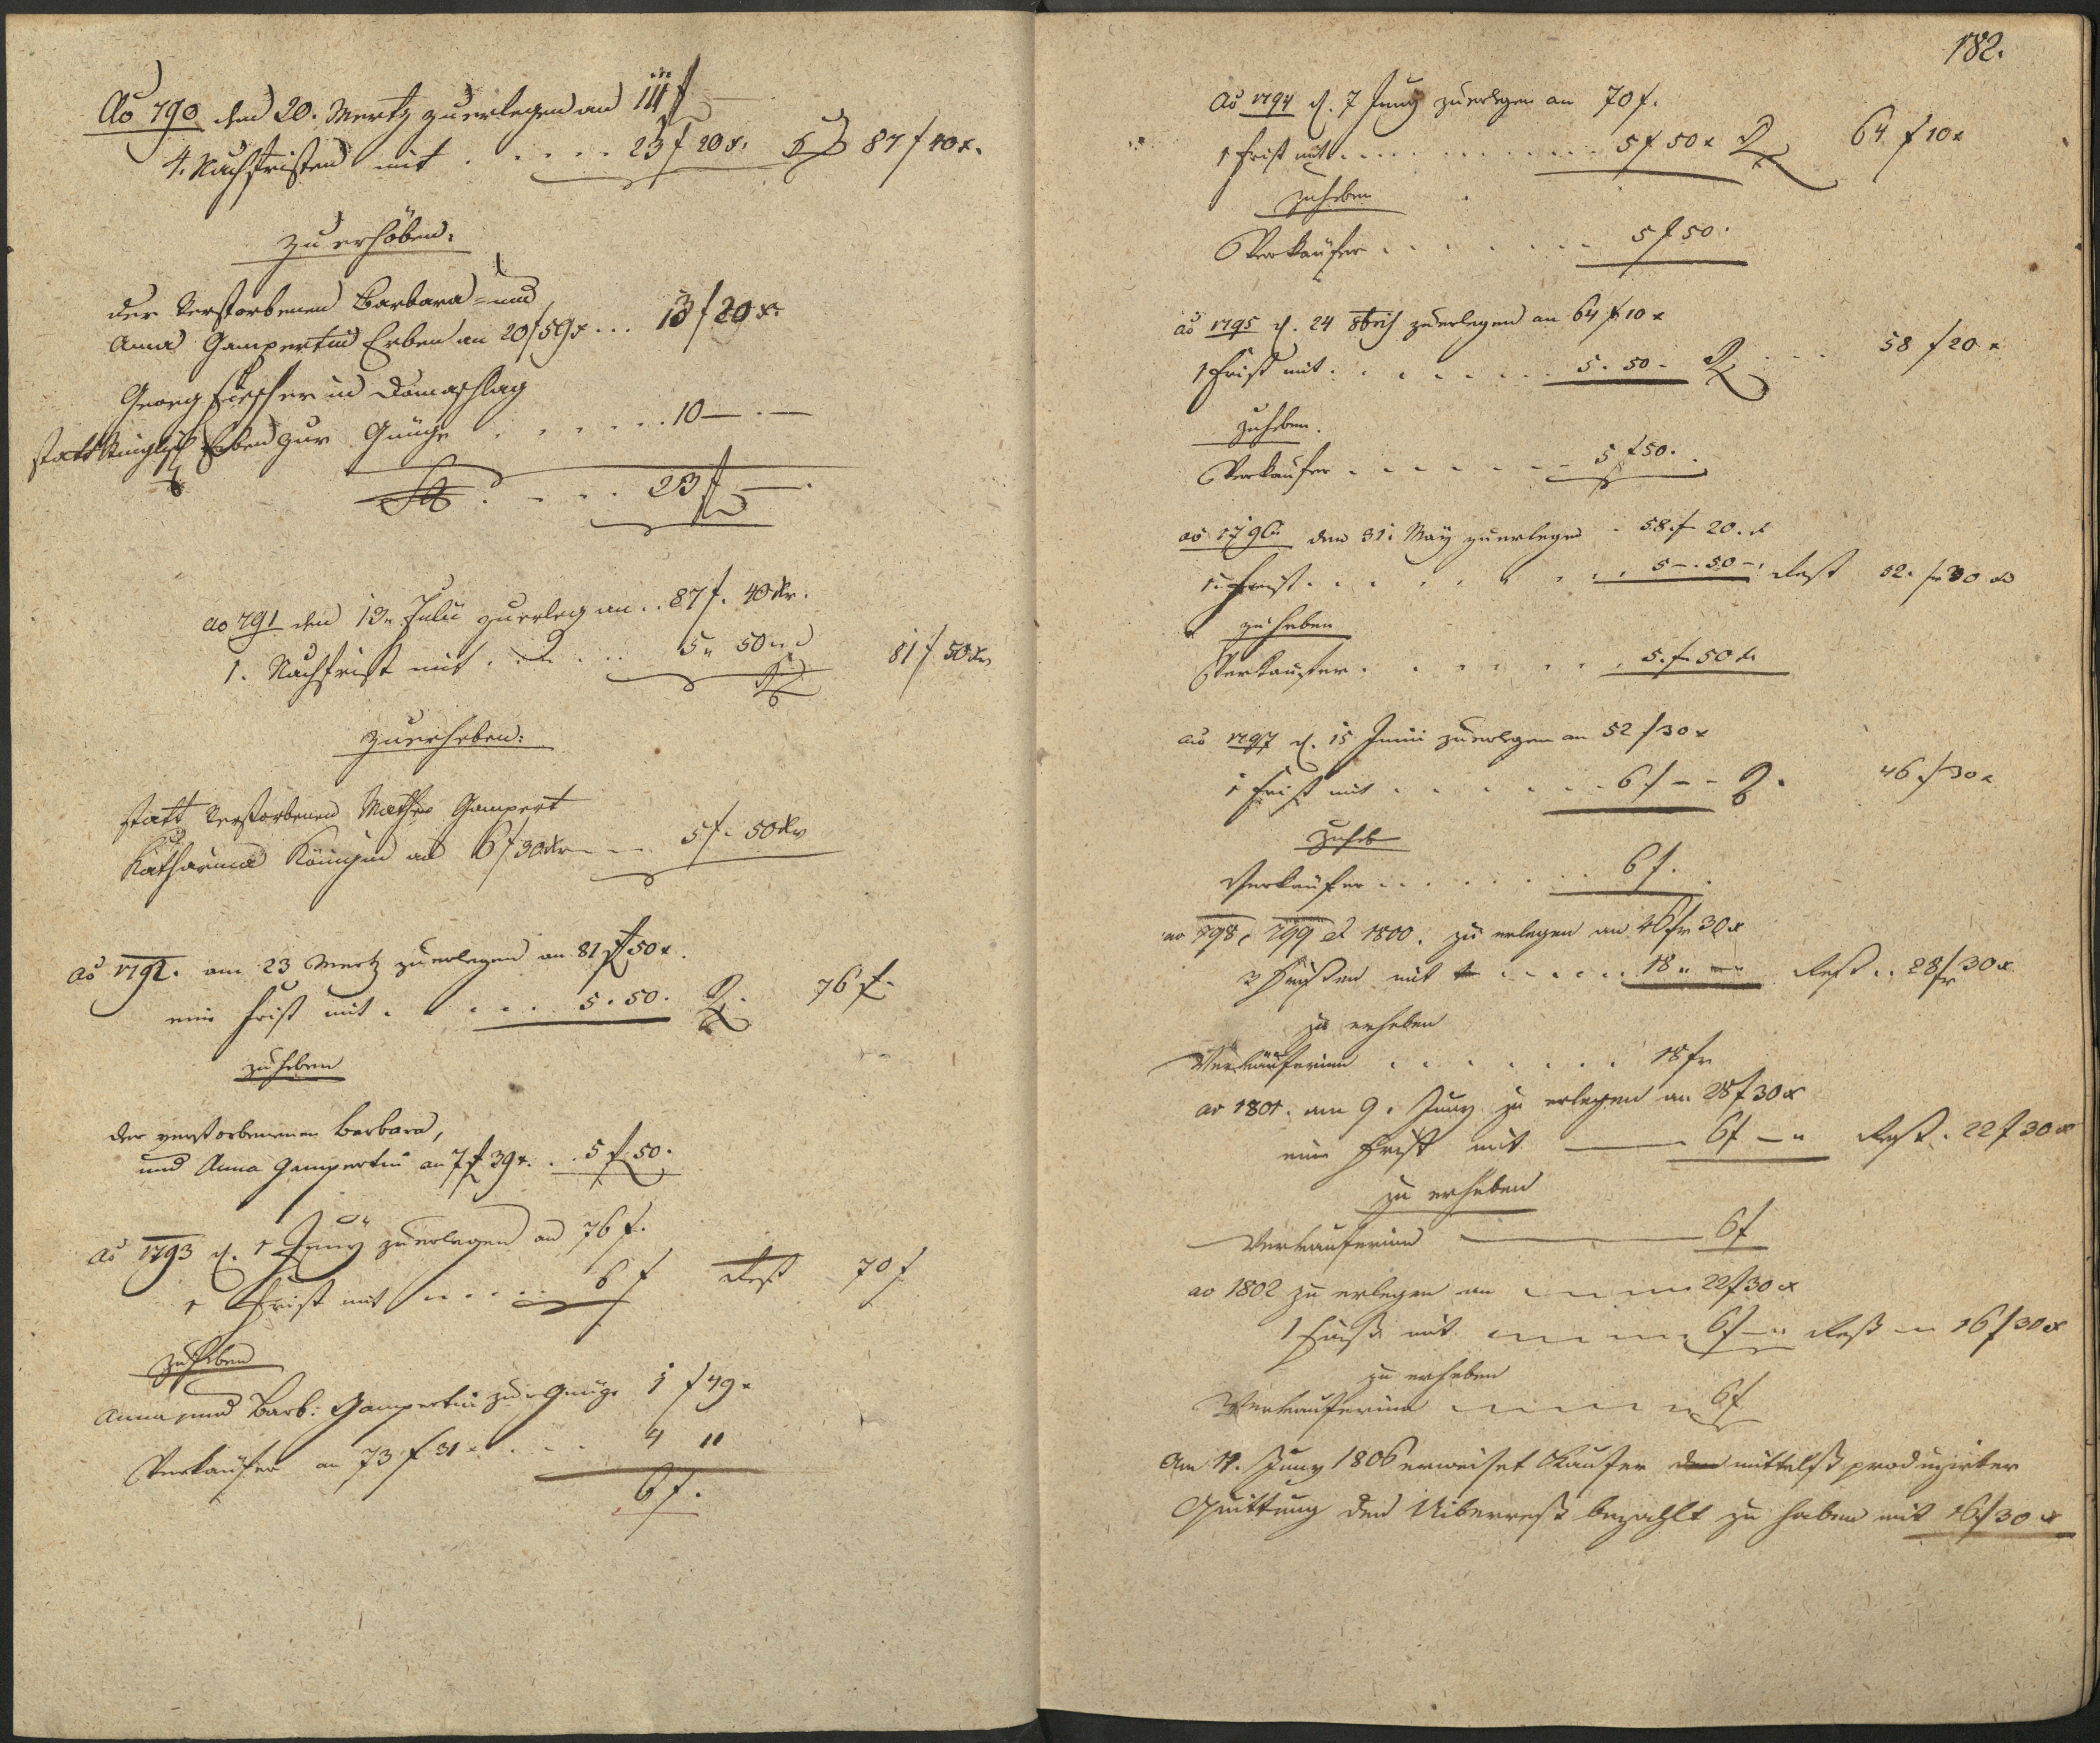 Ao 790 den 20. Mertz zu erlegen an 111 f
4. Nachfristen mit . . . . . 23 f 20 x. 87 f 40 x.
zu erhöben.
der Verstorbenen Barbara = und
Anna Gampertin Erben an 20 f 59 x . . . 13 f 20 x.
Georg Fischer in Domaschlag
statt Erben zur Gnüge . . . . . . 10 — . —
23 f — .
ao 791 den 13. Julii zu erleg an . . 87 f. 40 kr.
1. Nachfrist mit . . . . . 5 „ 50 „ 81 f 50 kr
zu erheben:
statt Verstorbenen Mathes Gampert
Katharina Königin an 6 f 30 kr — — 5 f. 50 kr
Ao 1792. am 23 Mertz zu erlegen an 81 f 50 x.
eine Frist mit . . . . . 5 . 50. R. 76 f.
zu heben
der verstorbenenen Barbara,
und Anna Gampertin an 7 f 39 x. . . 5 f 50.
Ao 1793 d. 1 Juny zu erlegen an 76 f.
1 Frist mit . . . . . 6 f Rest 70 f
zu heben
Anna und Barb: Gampertin zur Gnüge 1 f 49 x
Verkäufer an 73 f 31 x . . . . 4 11
6 f.
182.
Ao 1794 d. 7 Juny zu erlegen an 70 f.
1 Frist mit . . . . . . . . . . 5 f 50 x R 64 f 10 x
zu heben
Verkäufer . . . . . . . 5 f 50.
ao 1795 d. 24 8bris zu erlegen an 64 f 10 x
1 Frist mit . . . . . . . 5. 50 - R . . . 58 f 20 x
zu heben.
Verkäufer . . . . . . . 5 f 50.
ao 1796 den 31. May zu erlegen . 58. f 20. x
1. Frist . . . . . . . . 5 - . 50 - . Rest 52. f 30 x
zu heben
Verkäufer . . . . . . . 5. f 50 kr
ao 1797 d. 15 Junii zu erlegen an 52 f 30 x
1 Frist mit . . . . . . . 6 f - - R. 46 f 30 x
zu heb
Verkäufer . . . . . . . . 6 f.
ao 798, 799 et 1800. zu erlegen an 46 fr 30 x
3 Fristen mit . . . . . 18 „ — „ Rest . . 28 fr 30 x
zu erheben
Verkäuferinn . . . . . . . 18 fr
ao 1801. am 9. Juny zu erlegen an 28 f 30 x
eine Frist mit ——— 6 f — „ Rest . 22 f 30 x
zu erheben
Verkauferinn ——— 6 f
ao 1802 zu erlegen an — — — 22 f 30 x
1 Frist mit — — — — 6 f — „ Rest — 16 f 30 x
zu erheben
Verkauferinn — — — — — 6 f
Am 11. Juny 1806 erweiset Käufer den mittelst produzirter
Quittung den Uiberrest bezahlt zu haben mit 16 f 30 x